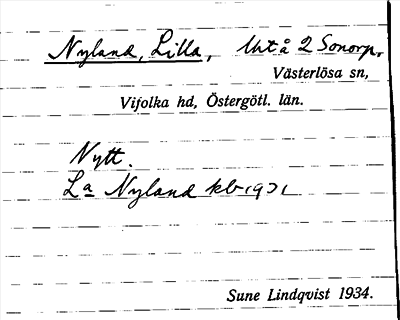 Nyland, Lilla, Utå 2 Sonorp,
Västerlösa sn,
Vifolka hd, Östergötl. län.
Nytt.
La Nyland kb 1931
Sune Lindqvist 1934.